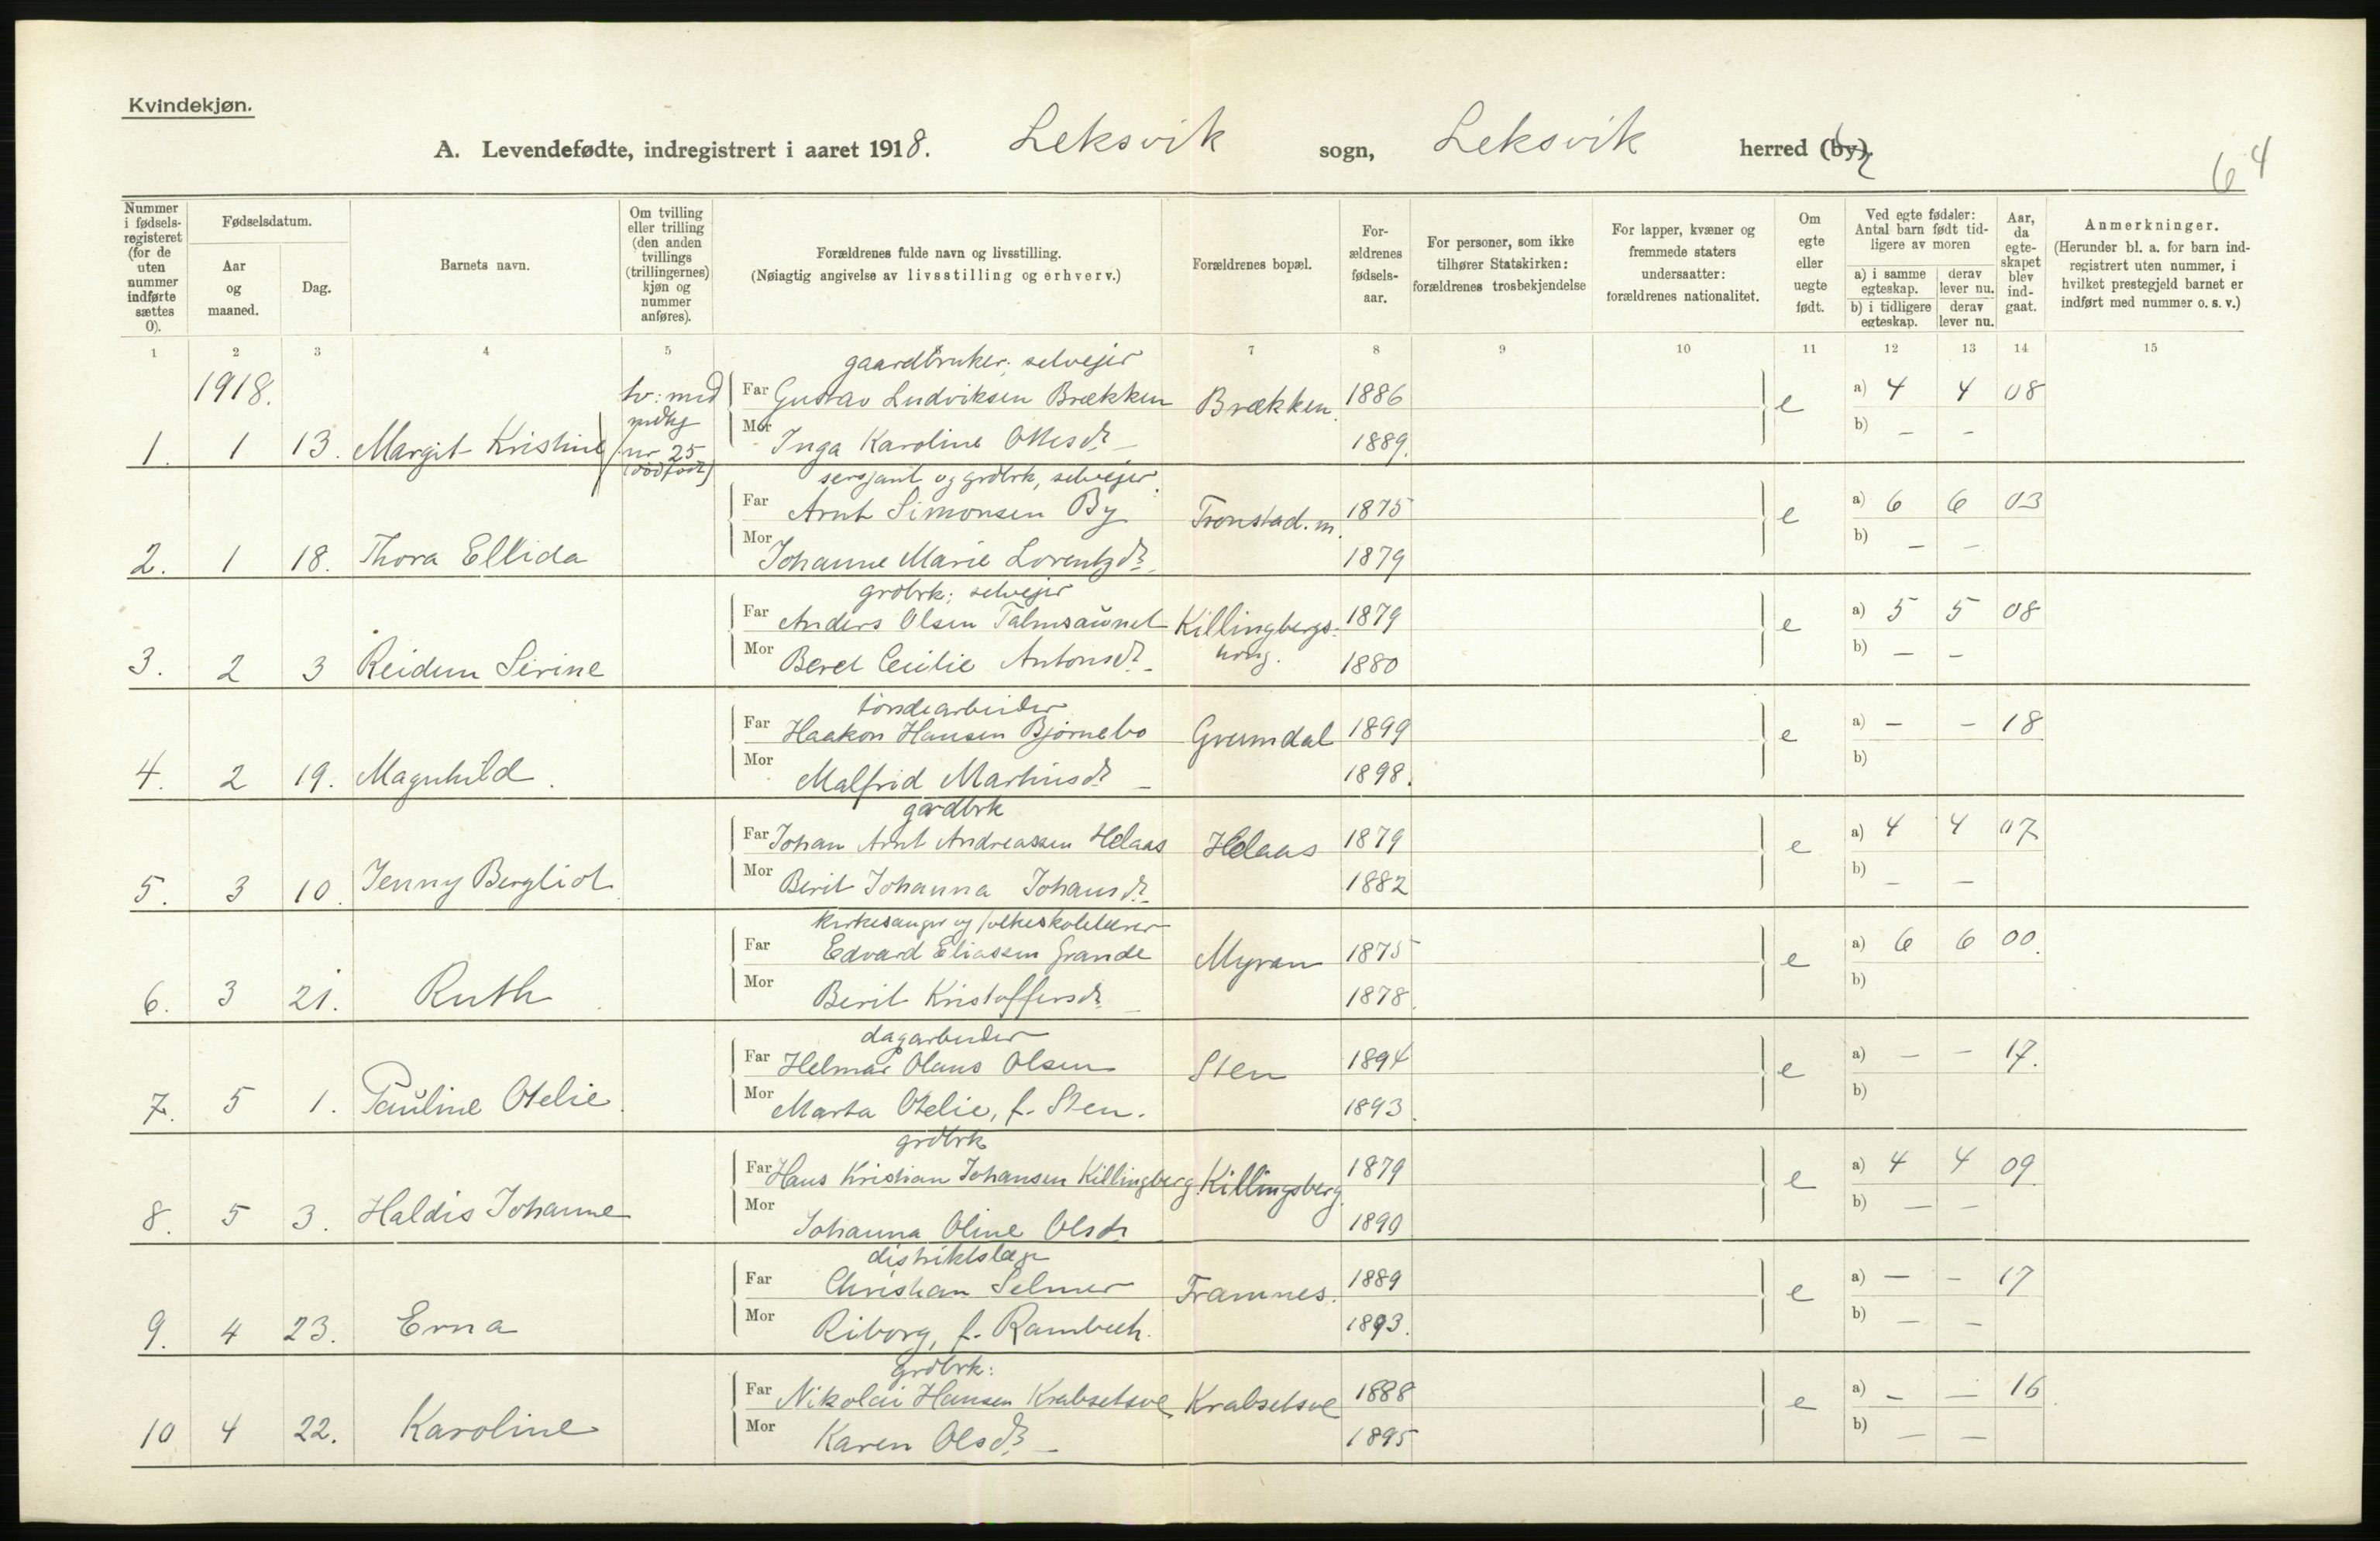 Kvindekjøn.
A. Levendefødte, indregistrert i aaret 1918. Leksvik sogn, Leksvik herred (by).
64
Nummer i fødselsregisteret (for de uten nummer indførte sættes 0).
Fødselsdatum.
Aar og maaned.
Dag.
Barnets navn.
Om tvilling eller trilling (den anden tvillings (trillingernes) kjøn og nummer anføres).
Forældrenes fulde navn og livsstilling.
(Nøiagtig angivelse av livsstilling og erhverv.)
Forældrenes bopæl.
Forældrenes fødselsaar.
For personer, som ikke tilhører Statskirken: forældrenes trosbekjendelse
For lapper, kvæner og fremmede staters undersaatter: forældrenes nationalitet.
Om egte eller uegte født.
Ved egte fødsler: Antal barn født tidligere av moren
a) i samme egteskap. derav lever nu.
b) i tidligere egteskap. derav lever nu.
Aar, da egteskapet blev indgaat.
Anmerkninger.
(Herunder bl. a. for barn indregistrert uten nummer, i hvilket prestegjeld barnet er indført med nummer o. s. v.)
1 2 3 4 5 7 8 9 10 11 12 13 14 15
gaardbruker, selvejer
1918. tv: med Far Gustav Ludviksen Brækken Brækken 1886 e a) 4 4 08
1. 1 13. Margit Kristine nr 25 (dødfødt) Mor Inga Karoline Ottesdr 1889. b) – –
sersjant og grdbrk, selvejer
Far Arnt Simonsen By Tronstad. m. 1875 e a) 6 6 03
2. 1 18. Thora Ellida Mor Johanne Marie Lorentzdr 1879 b) – –
grdbrk; selvejer
Far Anders Olsen Talmsaunet Killingbergs- 1879 e a) 5 5 08
3. 2 3 Reidun Serine Mor Beret Cecilie Antonsdr 1880 b) – –
tøndearbeider
Far Haakon Hansen Bjørnebo Grumdal 1899 e a) – – 18
4. 2 19. Magnhild. Mor Malfrid Martinsdr 1898. b)
gardbrk
Far Johan Arnt Andreassen Helaas Helaas 1879 e a) 4 4 07
5. 3 10. Jenny Bergliot Mor Berit Johanna Johansdr 1882 b) – –
kirkesanger og folkeskolelærer
Far Edvard Eliassen Grande Myran 1875 e a) 6 6 00.
6. 3 21. Ruth Mor Berit Kristoffersdr 1878. b)
dagarbeider
Far Helmar Olaus Olsen Sten 1894 e a) – – 17.
7. 5 1. Pauline Otelie Mor Marta Otelie, f. Sten. 1893. b)
grdbrk
Far Hans Kristian Johansen Killingberg Killingsberg. 1879 e a) 4 4 09
8. 5 3. Haldis Johanne Mor Johanna Oline Olsdr 1890 b) – –
distriktslæge
Far Christian Selmer Framnes. 1889 e a) – – 17
9. 4 23. Erna Mor Riborg, f. Rambech. 1893. b) – –
grdbrk:
Far Nikolai Hansen Krabsetsve Krabsetsve 1888 e a) – – 16
10 4 22. Karoline Mor Karen Olsdr 1895 b) – –